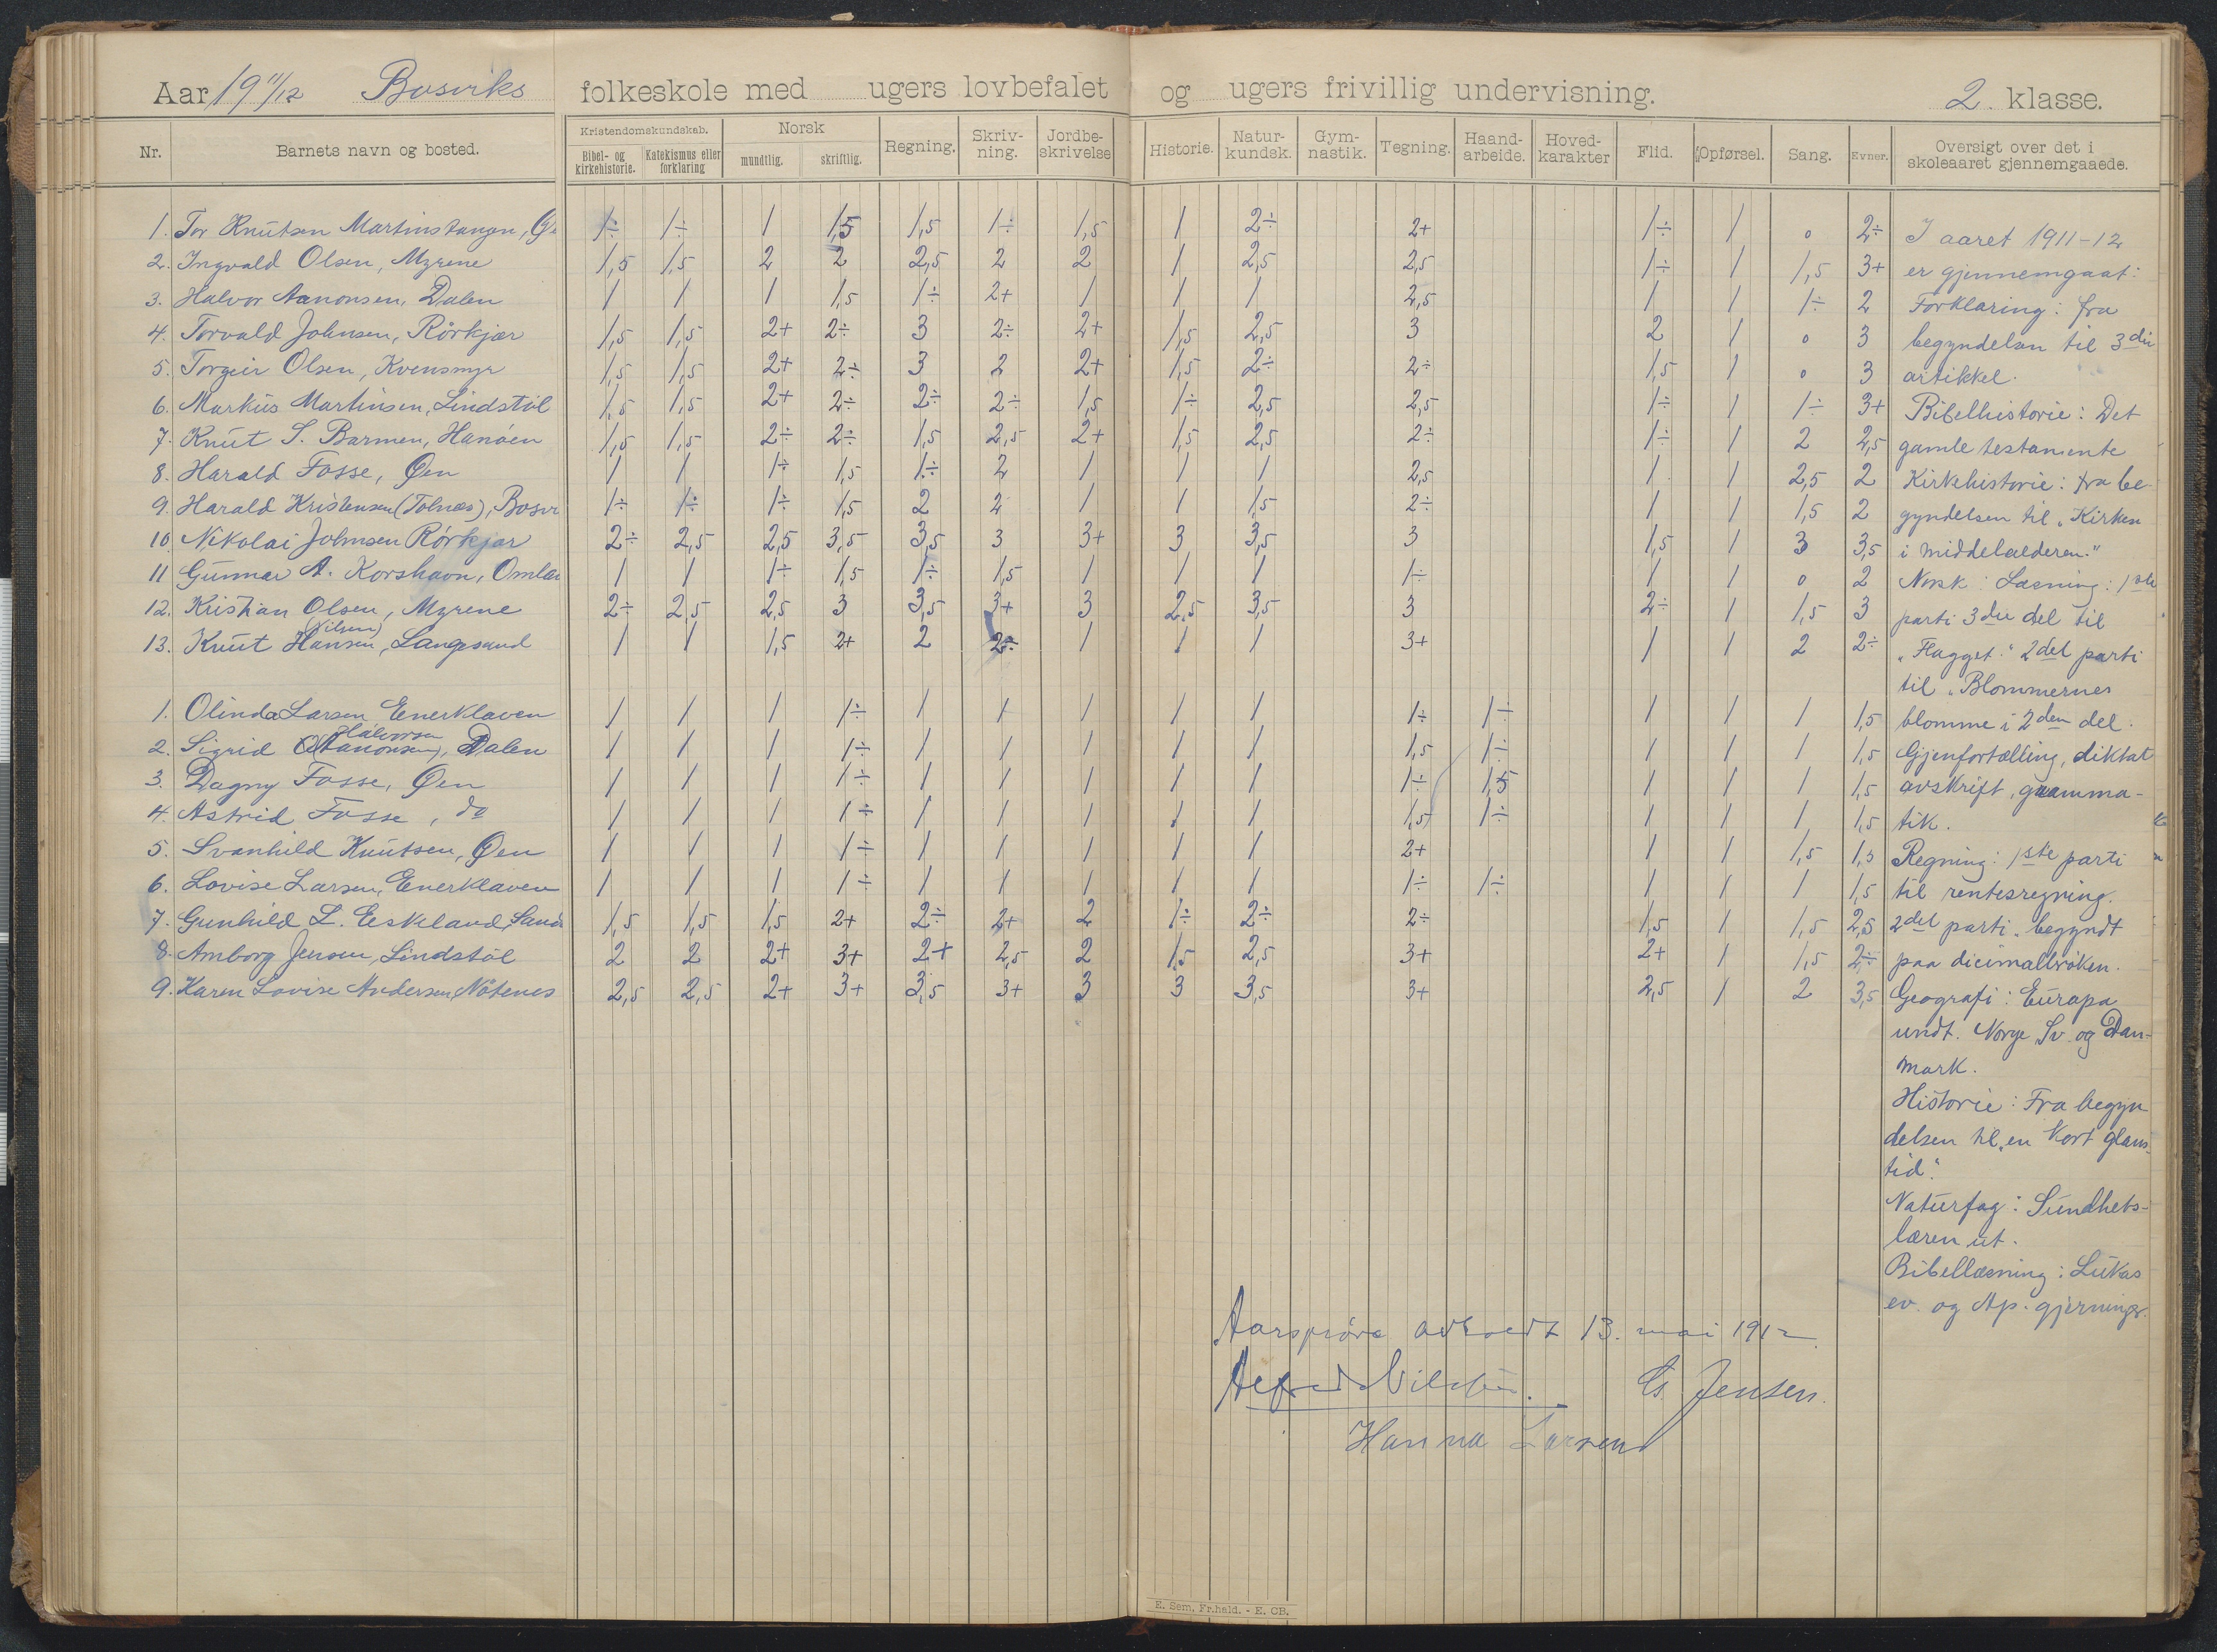 Aar 19 11/12 Bosviks folkeskole med ugers lovbefalet og ugers frivillig undervisning. 2. klasse.
Nr. Barnets navn og bosted. Kristendomskundskab. Bibel- og kirkehistorie. Katekismus eller forklaring Norsk mundtlig. skriftlig. Regning. Skriv-ning. Jordbe-skrivelse Historie. Natur-kundsk. Gym-nastik. Tegning. Haand-arbeide. Hoved-karakter Flid. Opførsel. Sang. Evner. Oversigt over det i skoleaaret gjennemgaaede.
1. Tor Knutsen Martinstangen, 1÷ 1÷ 1 1,5 1,5 1÷ 1,5 1 2÷ 2+ 1÷ 1 0 2÷
2. Ingvald Olsen, Myrene 1,5 1,5 2 2 2,5 2 2 1 2,5 2,5 1÷ 1 1,5 3+
3. Halvor Aanonsen, Dalen 1 1 1 1,5 1÷ 2+ 1 1 1 2,5 1 1 1÷ 2
4. Torvald Johnsen, Rörkjær 1,5 1,5 2+ 2÷ 3 2÷ 2+ 1,5 2,5 3 2 1 0 3
5. Torgeir Olsen, Kvensmyr 1,5 1,5 2+ 2÷ 3 2 2+ 1,5 2÷ 2÷ 1,5 1 0 3
6. Markus Martinsen, Lindstöl 1,5 1,5 2+ 2÷ 2÷ 2÷ 1,5 1÷ 2,5 2,5 1÷ 1 1÷ 3+
7. Knut S. Barmen, Hanöen 1,5 1,5 2÷ 2÷ 1,5 2,5 2+ 1,5 2,5 2÷ 1÷ 1 2 2,5
8. Harald Fosse, Øen 1 1 1÷ 1,5 1÷ 2 1 1 1 2,5 1 1 2,5 2
9. Harald Kristensen (Tolnæs), Bosv 1÷ 1÷ 1÷ 1,5 2 2 1 1 1,5 2÷ 1 1 1,5 2
10. Nikolai Johnsen Rörkjær 2÷ 2,5 2,5 3,5 3,5 3 3+ 3 3,5 3 1,5 1 3 3,5
11 Gunnar A. Korshavn, Omla 1 1 1÷ 1,5 1÷ 1,5 1 1 1 1÷ 1 1 0 2
12. Kristian Olsen, Myrene 2÷ 2,5 2,5 3 3,5 3+ 3 2,5 3,5 3 2÷ 1 1,5 3
(Nilsen)
13. Knut Hansen, Langesand 1 1 1,5 2+ 2 2÷ 1 1 1 3+ 1 1 2 2÷
1. Olinda Larsen Enerklaven 1 1 1 1÷ 1 1 1 1 1 1÷ 1÷ 1 1 1 1,5
Halvorsen
2. Sigrid (Aanonsen), Dalen 1 1 1 1÷ 1 1 1 1 1 1,5 1÷ 1 1 1 1,5
3. Dagny Fosse, Øen 1 1 1 1÷ 1 1 1 1 1 1÷ 1,5 1 1 1 1,5
4. Astrid Fosse, do 1 1 1 1÷ 1 1 1 1 1 1,5 1÷ 1 1 1 1,5
5. Svanhild Knutsen, Øen 1 1 1 1÷ 1 1 1 1 1 2+ 1 1 1,5 1,5
6. Lovise Larsen, Enerklaven 1 1 1 1÷ 1 1 1 1 1 1÷ 1÷ 1 1 1 1,5
7. Gunhild L. Eeskeland, Sand 1,5 1,5 1,5 2+ 2÷ 2+ 2 1÷ 2÷ 2÷ 1,5 1 1,5 2,5
8. Amborg Jensen, Lindstöl 2 2 2+ 3+ 2+ 2,5 2 1,5 2,5 3+ 2+ 1 1,5 2÷
9. Karen Lovise Andersen, Nötenes 2,5 2,5 2+ 3+ 3,5 3+ 3 3 3,5 3+ 2,5 1 2 3,5
I aaret 1911-12
er gjennemgaat:
Forklaring: fra
begyndelsen til 3die
artikkel.
Bibelhistorie: Det
gamle testamente
Kirkehistorie: fra be-
gyndelsen til „Kirken
i middelalderen."
Norsk: Læsning: 1ste
parti 3die del til
„Flagget." 2det parti
til „Blommernes
blomme i 2den del.
Gjenfortælling, diktat
avskrift, gramma-
tik.
Regning: 1ste parti
til rentesregning.
2det parti begyndt
paa dicimalbröken.
Geografi: Europa
undt. Norge Sv. og Dan-
mark.
Historie: Fra begyn
delsen til „en kort glans-
tid".
Naturfag: Sundhets-
læren ut.
Bibellæsning: Lukas
ev. og Ap. gjerninger.
Aarspröve avholdt 13. mai 1912.
Alfred Nilsen. Jensen.
Hanna Larsen
E. Sem, Fr.hald. - E. CB.